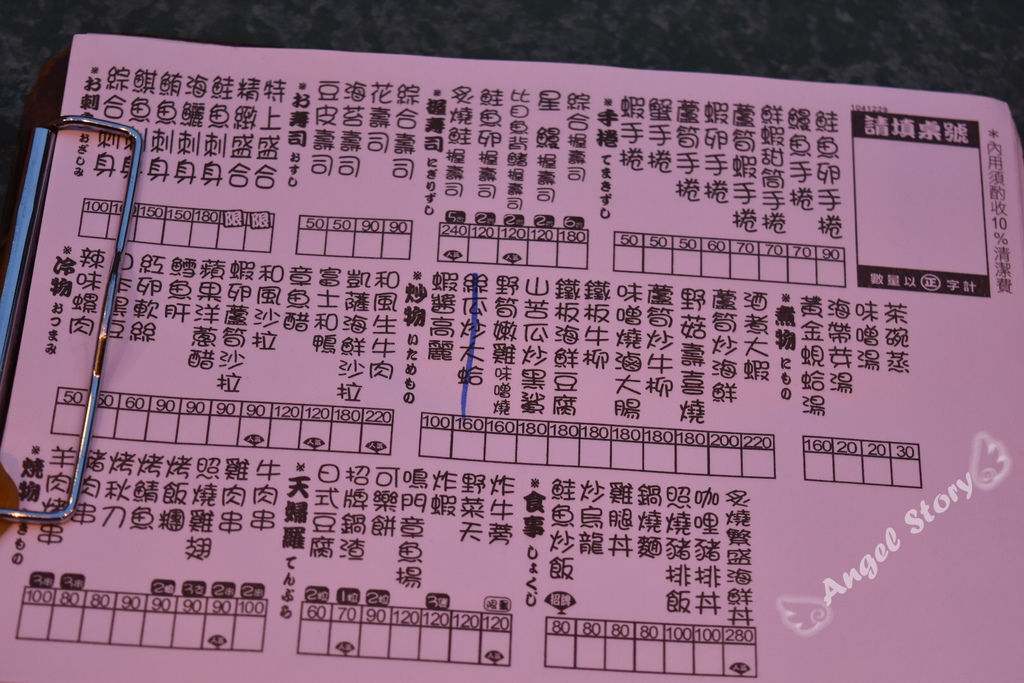 ※お刺身 おさしみ
綜合刺身
鯕魚刺身
鮪魚刺身
海鱺刺身
鮭魚刺身
精緻盛合
特上盛合
100 150 150 180 限 限
※お寿司 おすし
豆皮壽司
海苔壽司
花壽司
綜合壽司
50 50 90 90
※握寿司 にぎりずし
炙燒鮭握壽司
鮭魚卵握壽司
比目魚背鰭握壽司
星鰻握壽司
綜合握壽司
240 120 120 120 180
※手捲 てまきずし
蝦手捲
蟹手捲
蘆筍手捲
蝦卵手捲
蘆筍蝦手捲
鮮蝦甜筒手捲
鰻魚手捲
鮭魚卵手捲
50 50 50 60 70 70 70 90
1041229
請填桌號
數量以正字計
*內用須酌收10%清潔費
※冷物 おつまみ
辣味螺肉
紅卵軟絲
鱈魚肝
蘋果洋蔥醋
蝦卵蘆筍沙拉
和風沙拉
章魚醋
富士和鴨
凱薩海鮮沙拉
和風牛牛肉
50 60 90 90 90 90 120 120 180 220
※炒物 いためもの
蝦醬高麗
絲瓜炒大蛤
野筍嫩雞味噌燒
山苦瓜炒黑鯊
鐵板海鮮豆腐
鐵板牛柳
味噌燒滷大腸
蘆筍炒牛柳
野菇壽喜燒
蘆筍炒海鮮
酒煮大蝦
100 160 160 180 180 180 180 180 180 200 220
※煮物 にもの
黃金蜆蛤湯
海帶芽湯
味噌湯
茶碗蒸
160 20 20 30
※燒物 きもの
羊肉串
豬肉串
烤秋刀
烤鯖魚
烤飯糰
照燒雞翅
雞肉串
牛肉串
100 80 80 90 90 90 90 100
※天婦羅 てんぷら
日式豆腐
招牌鍋渣
可樂餅
鳴門章魚揚
炸蝦
野菜天
炸牛蒡
60 70 90 120 120 120 120
※食事 しょくじ
鮭魚炒飯
炒烏龍
雞腿丼
鍋燒麵
照燒豬排飯
咖哩豬排丼
炙燒繁盛海鮮丼
招牌
80 80 80 80 100 100 280
Angel Story